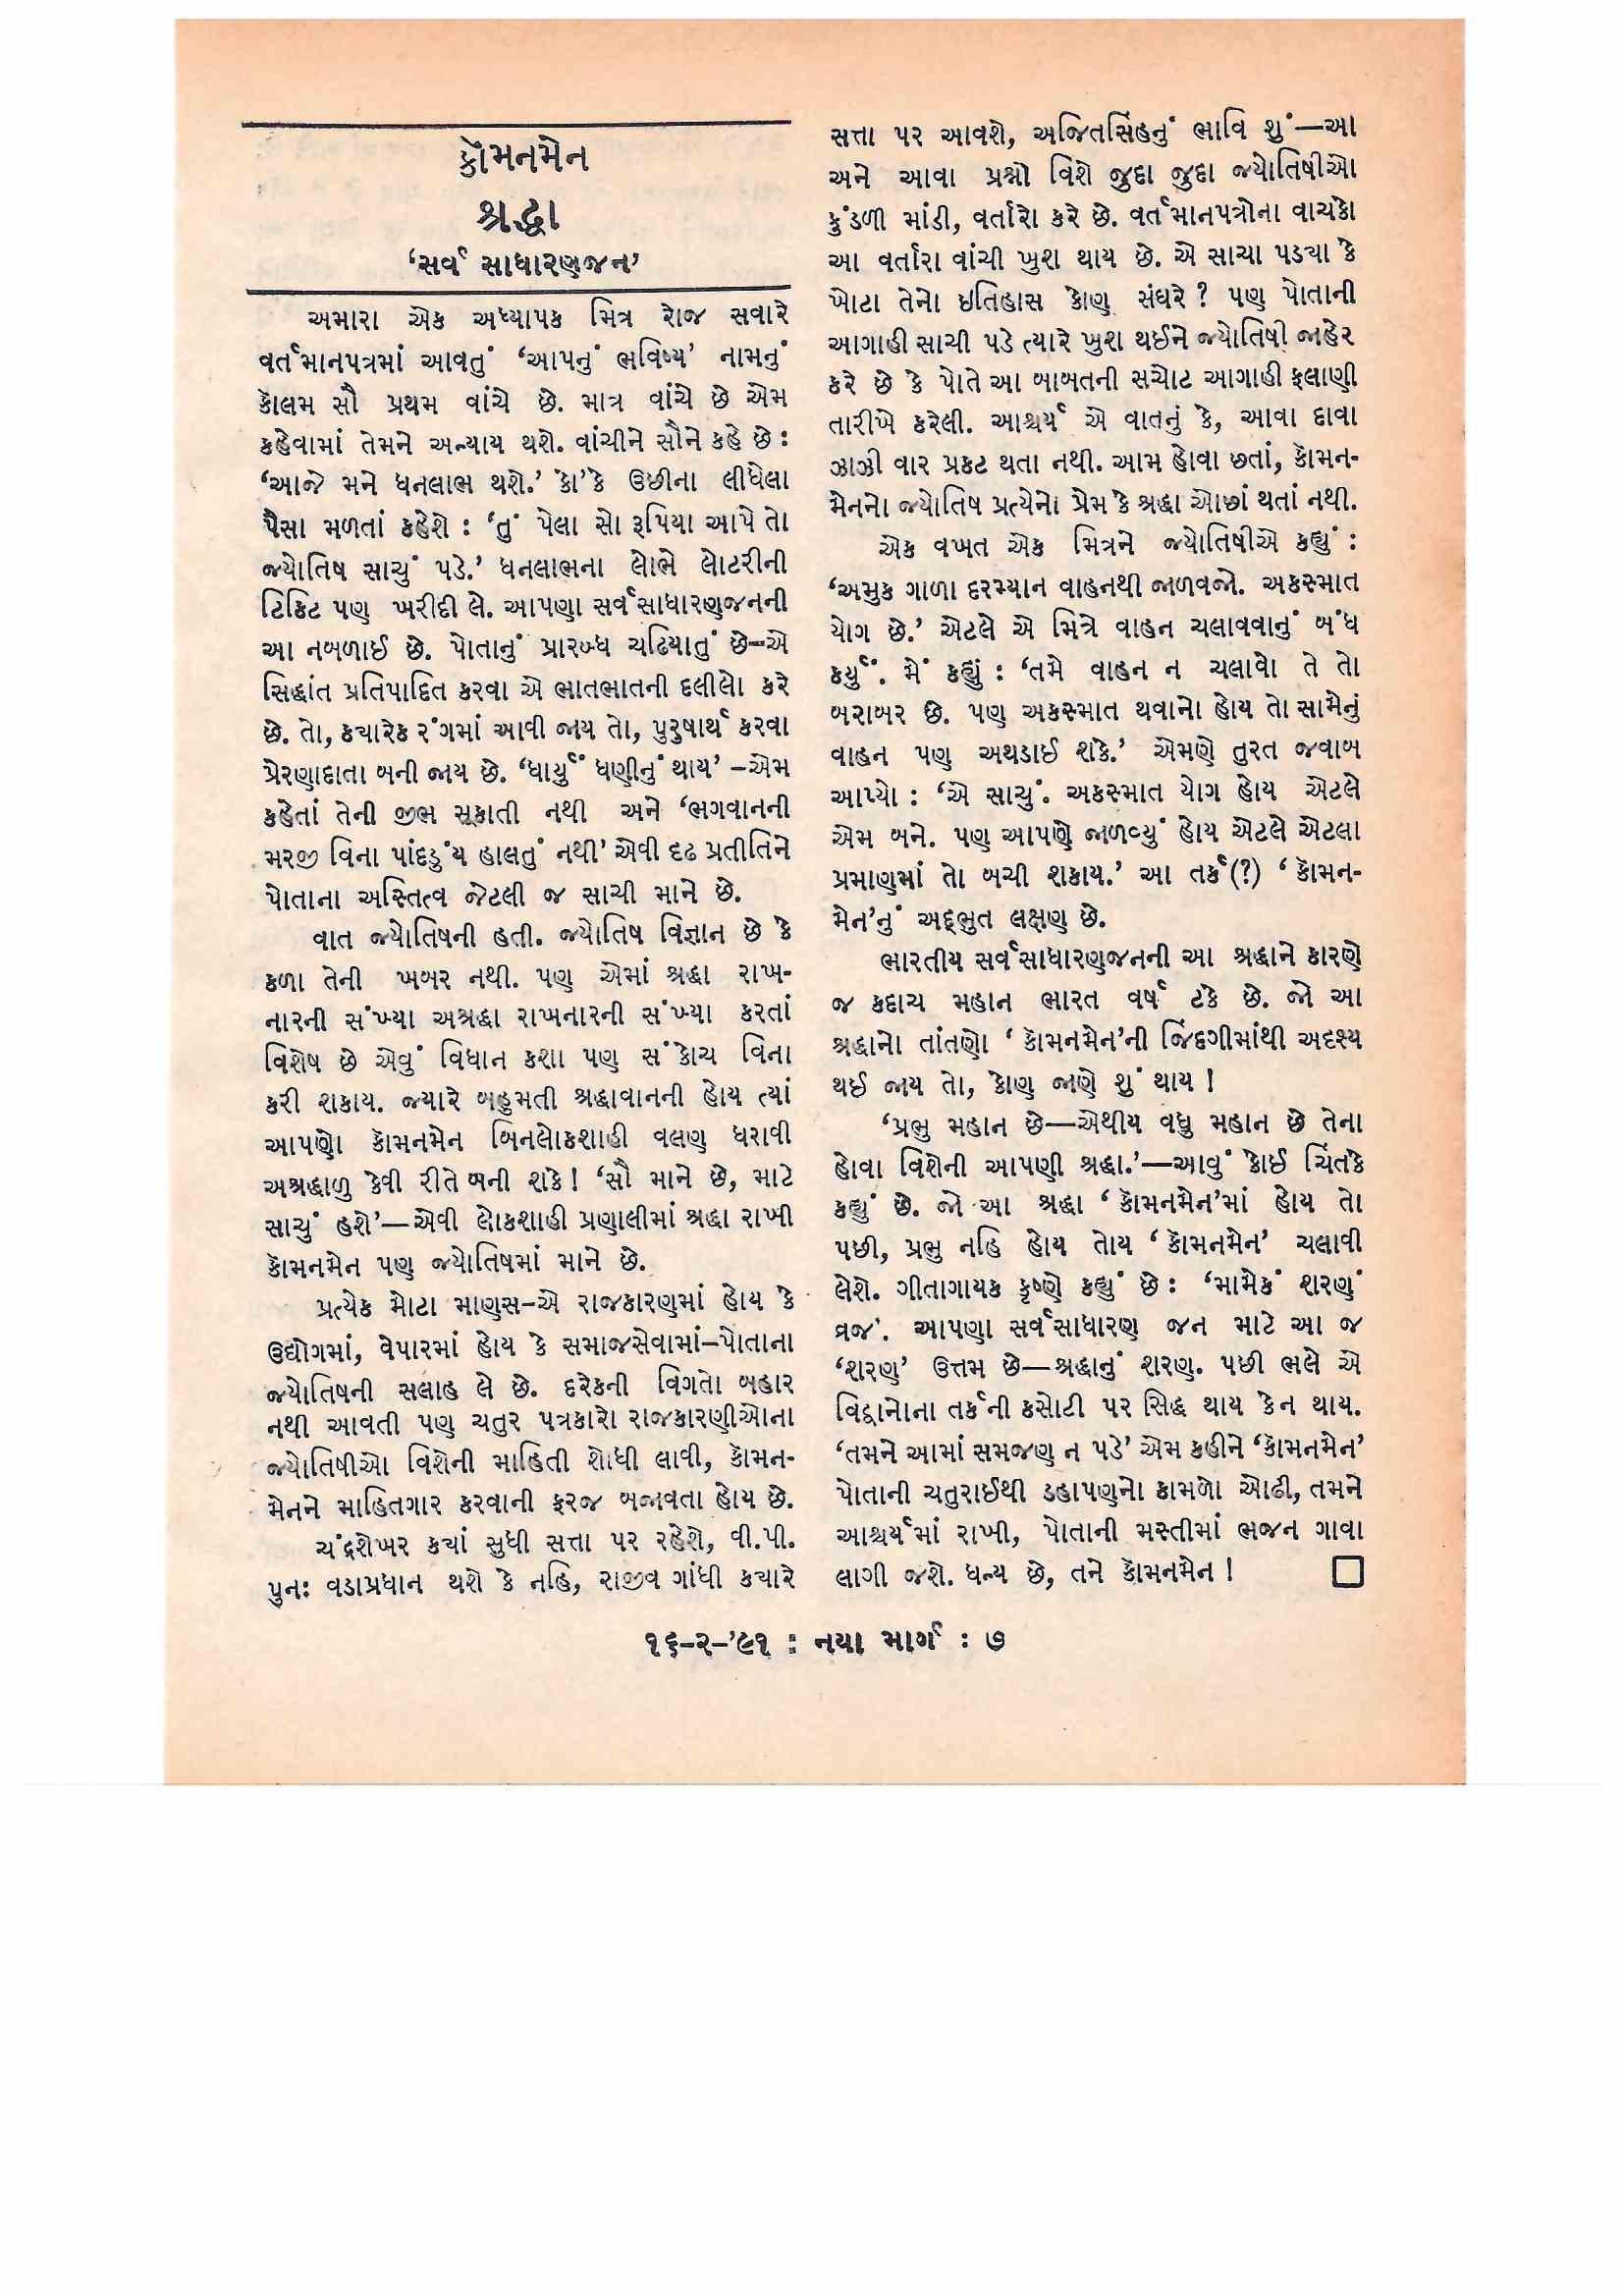 કૉમનમૅન
શ્રદ્ધા
‘સર્વ સાધારણજન’
અમારા એક અધ્યાપક મિત્ર રોજ સવારે
વર્તમાનપત્રમાં આવતું ‘આપનું ભવિષ્ય’ નામનું
કૉલમ સૌ પ્રથમ વાંચે છે. માત્ર વાંચે છે એમ
કહેવામાં તેમને અન્યાય થશે. વાંચીને સૌને કહે છે :
‘આજે મને ધનલાભ થશે.’ કો’કે ઉછીના લીધેલા
પૈસા મળતાં કહેશે : ‘તું પેલા સો રૂપિયા આપે તો
જ્યોતિષ સાચું પડે.’ ધનલાભના લોભે લોટરીની
ટિકિટ પણ ખરીદી લે. આપણા સર્વસાધારણજનની
આ નબળાઈ છે. પોતાનું પ્રારબ્ધ ચઢિયાતું છે–એ
સિદ્ધાંત પ્રતિપાદિત કરવા એ ભાતભાતની દલીલો કરે
છે. તો, ક્યારેક રંગમાં આવી જાય તો, પુરુષાર્થ કરવા
પ્રેરણાદાતા બની જાય છે. ‘ધાર્યું ધણીનું થાય’ –એમ
કહેતાં તેની જીભ સૂકાતી નથી અને ‘ભગવાનની
મરજી વિના પાંદડુંય હાલતું નથી’ એવી દૃઢ પ્રતીતિને
પોતાના અસ્તિત્વ જેટલી જ સાચી માને છે.
વાત જ્યોતિષની હતી. જ્યોતિષ વિજ્ઞાન છે કે
કળા તેની ખબર નથી. પણ એમાં શ્રદ્ધા રાખ-
નારની સંખ્યા અશ્રદ્ધા રાખનારની સંખ્યા કરતાં
વિશેષ છે એવું વિધાન કશા પણ સંકોચ વિના
કરી શકાય. જ્યારે બહુમતી શ્રદ્ધાવાનની હોય ત્યાં
આપણો કૉમનમેન બિનલોકશાહી વલણ ધરાવી
અશ્રદ્ધાળુ કેવી રીતે બની શકે! ‘સૌ માને છે, માટે
સાચું હશે’—એવી લોકશાહી પ્રણાલીમાં શ્રદ્ધા રાખી
કૉમનમેન પણ જ્યોતિષમાં માને છે.
પ્રત્યેક મોટા માણસ–એ રાજકારણમાં હોય કે
ઉદ્યોગમાં, વેપારમાં હોય કે સમાજસેવામાં–પોતાના
જ્યોતિષની સલાહ લે છે. દરેકની વિગતો બહાર
નથી આવતી પણ ચતુર પત્રકારો રાજકારણીઓના
જ્યોતિષીઓ વિશેની માહિતી શોધી લાવી, કૉમન-
મેનને માહિતગાર કરવાની ફરજ બજાવતા હોય છે.
ચંદ્રશેખર ક્યાં સુધી સત્તા પર રહેશે, વી.પી.
પુનઃ વડાપ્રધાન થશે કે નહિ, રાજીવ ગાંધી ક્યારે
સત્તા પર આવશે, અજિતસિંહનું ભાવિ શું—આ
અને આવા પ્રશ્નો વિશે જુદા જુદા જ્યોતિષીઓ
કુંડળી માંડી, વર્તારો કરે છે. વર્તમાનપત્રોના વાચકો
આ વર્તારા વાંચી ખુશ થાય છે. એ સાચા પડ્યા કે
ખોટા તેનો ઇતિહાસ કોણ સંઘરે? પણ પોતાની
આગાહી સાચી પડે ત્યારે ખુશ થઈને જ્યોતિષી જાહેર
કરે છે કે પોતે આ બાબતની સચોટ આગાહી ફલાણી
તારીખે કરેલી. આશ્ચર્ય એ વાતનું કે, આવા દાવા
ઝાઝી વાર પ્રકટ થતા નથી. આમ હોવા છતાં, કૉમન-
મેનનો જ્યોતિષ પ્રત્યેનો પ્રેમ કે શ્રદ્ધા ઓછાં થતાં નથી.
એક વખત એક મિત્રને જ્યોતિષીએ કહ્યું :
‘અમુક ગાળા દરમ્યાન વાહનથી જાળવજો. અકસ્માત
યોગ છે.’ એટલે એ મિત્રે વાહન ચલાવવાનું બંધ
કર્યું. મેં કહ્યું : ‘તમે વાહન ન ચલાવો તે તો
બરાબર છે. પણ અકસ્માત થવાનો હોય તો સામેનું
વાહન પણ અથડાઈ શકે.’ એમણે તુરત જવાબ
આપ્યો : ‘એ સાચું. અકસ્માત યોગ હોય એટલે
એમ બને. પણ આપણે જાળવ્યું હોય એટલે એટલા
પ્રમાણમાં તો બચી શકાય.’ આ તર્ક(?) ‘કૉમન-
મેન’નું અદ્ભુત લક્ષણ છે.
ભારતીય સર્વસાધારણજનની આ શ્રદ્ધાને કારણે
જ કદાચ મહાન ભારત વર્ષ ટકે છે. જો આ
શ્રદ્ધાનો તાંતણો ‘કૉમનમેન’ની જિંદગીમાંથી અદૃશ્ય
થઈ જાય તો, કોણ જાણે શું થાય !
‘પ્રભુ મહાન છે—એથીય વધુ મહાન છે તેના
હોવા વિશેની આપણી શ્રદ્ધા.’—આવું કોઈ ચિંતકે
કહ્યું છે. જો આ શ્રદ્ધા ‘કૉમનમેન’માં હોય તો
પછી, પ્રભુ નહિ હોય તોય ‘કૉમનમેન’ ચલાવી
લેશે. ગીતાગાયક કૃષ્ણે કહ્યું છે : ‘મામેકં શરણં
વ્રજ’. આપણા સર્વસાધારણ જન માટે આ જ
‘શરણ’ ઉત્તમ છે—શ્રદ્ધાનું શરણ. પછી ભલે એ
વિદ્વાનોના તર્કની કસોટી પર સિદ્ધ થાય કે ન થાય.
‘તમને આમાં સમજણ ન પડે’ એમ કહીને ‘કૉમનમેન’
પોતાની ચતુરાઈથી ડહાપણનો કામળો ઓઢી, તમને
આશ્ચર્યમાં રાખી, પોતાની મસ્તીમાં ભજન ગાવા
લાગી જશે. ધન્ય છે, તને કૉમનમેન !
૧૬–૨–’૯૧ : નયા માર્ગ : ૭